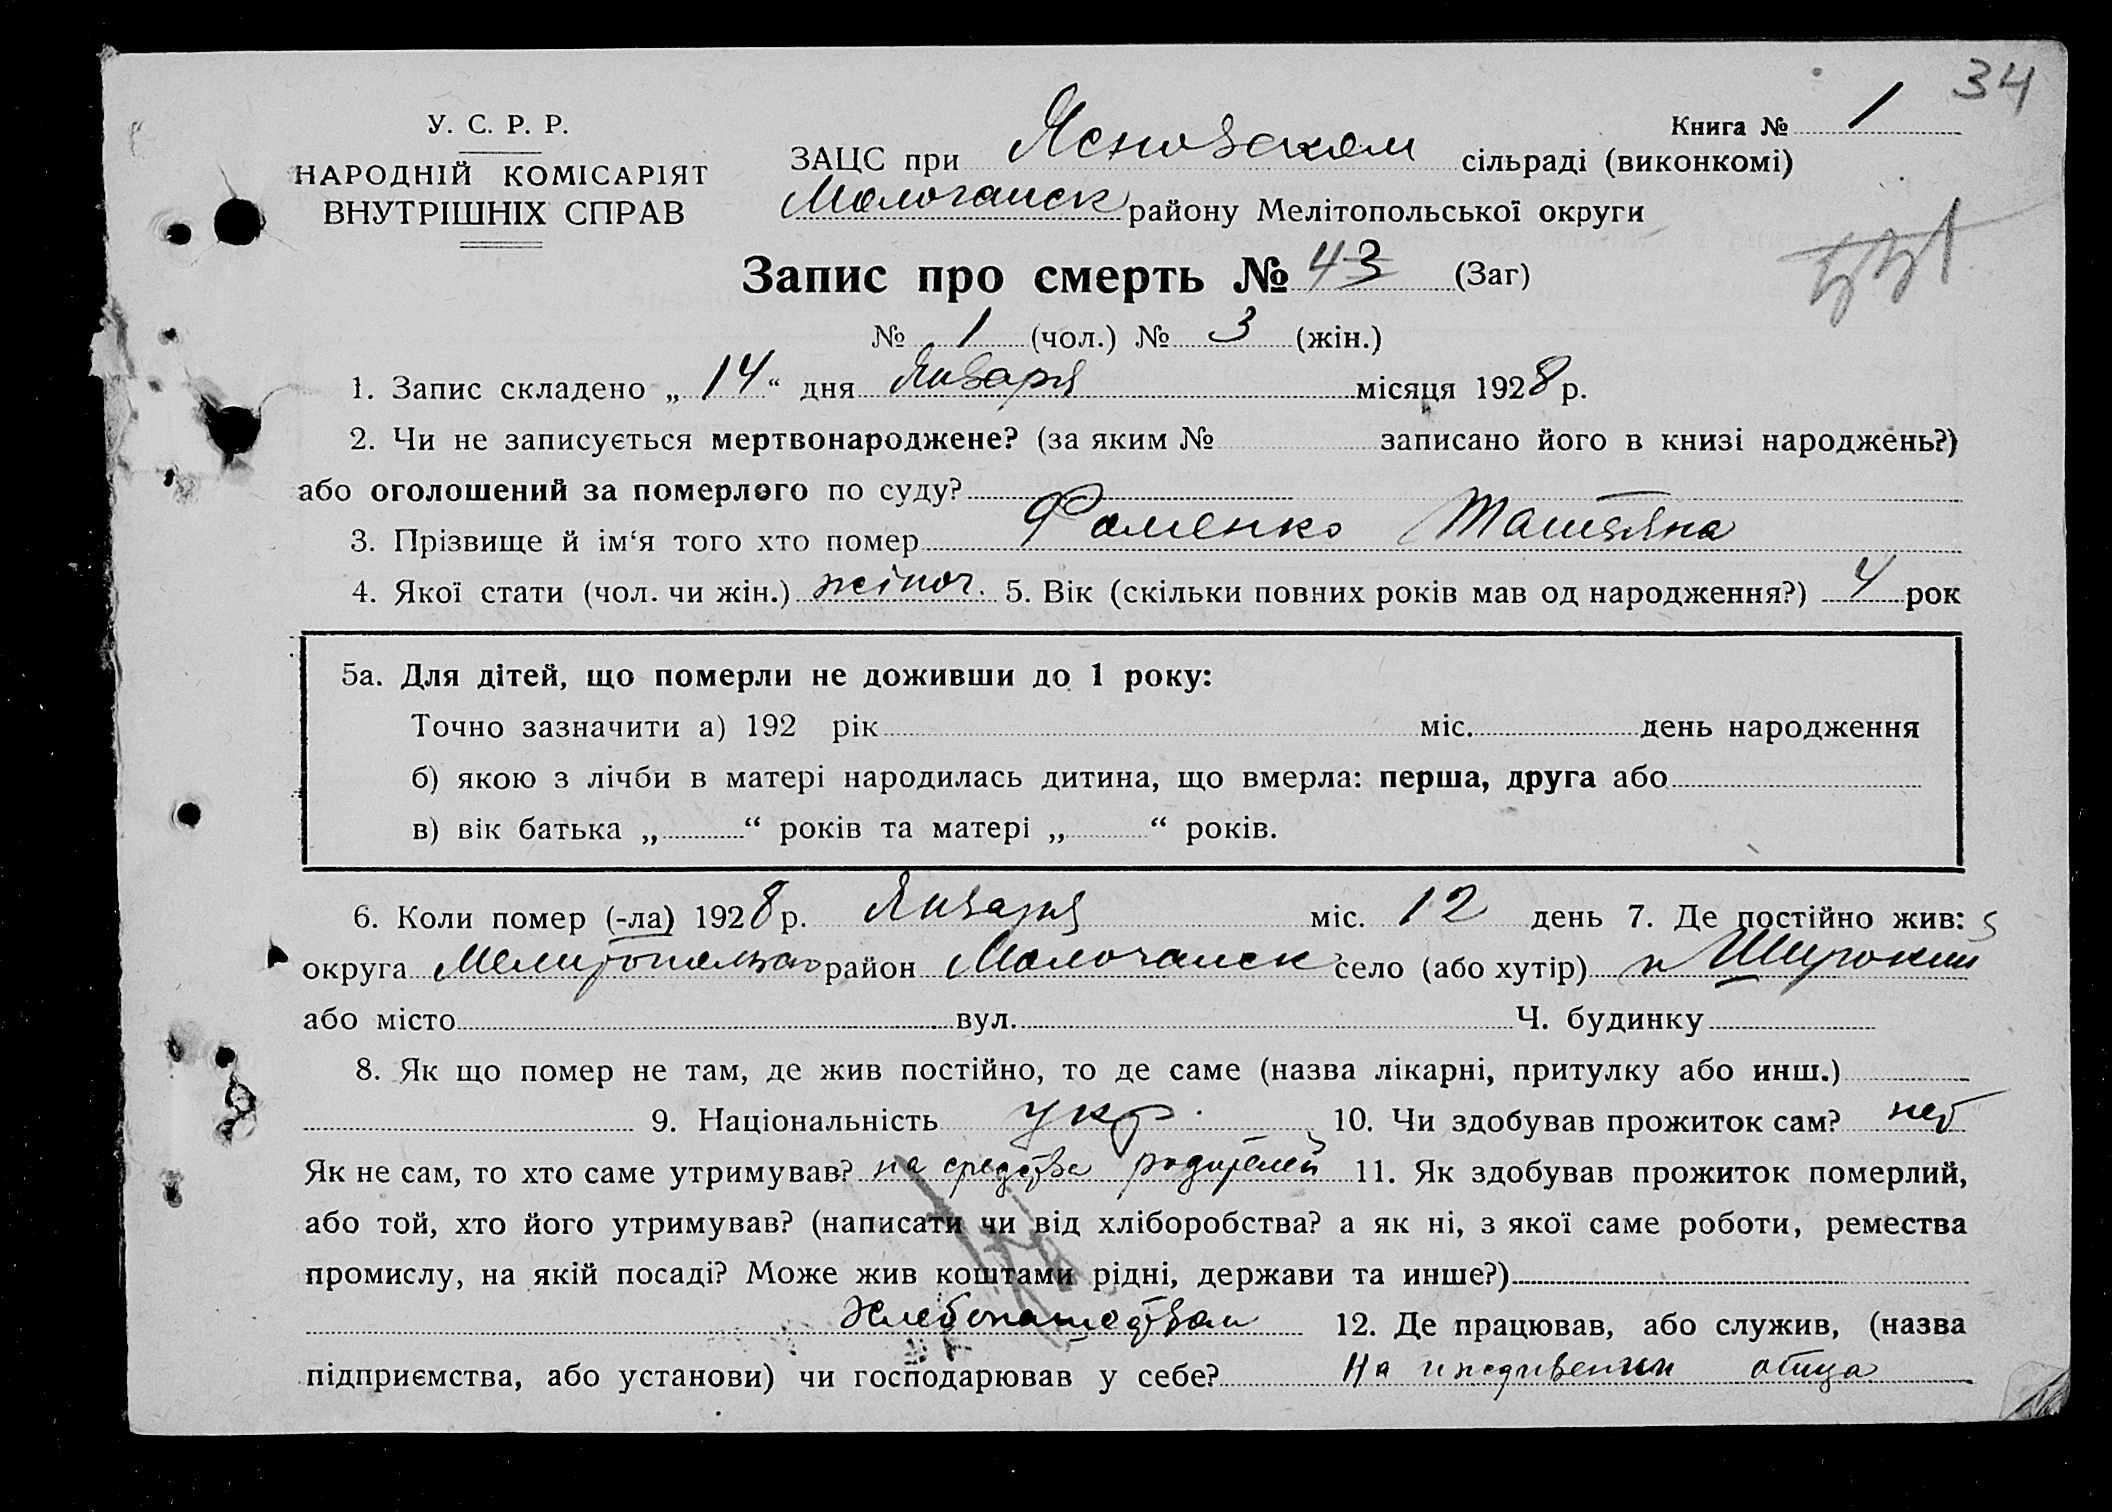 34
У. С. Р. Р.
НАРОДНІЙ КОМІСАРІЯТ
ВНУТРІШНІХ СПРАВ
Книга № 1
ЗАЦС при Ясновском сільраді (виконкомі)
Молочанск району Мелітопольської округи
Запис про смерть № 43 (Заг)
№ 1 (чол.) № 3 (жін.)
1. Запис складено „ 14 “ дня Января місяця 1928 р.
2. Чи не записується мертвонароджене? (за яким № записано його в книзі народжень?)
або оголошений за померлого по суду?
3. Прізвище й ім‘я того хто помер Фоменко Татьяна
4. Якої стати (чол. чи жін.) жіноч. 5. Вік (скільки повних років мав од народження?) 4 рок
5а. Для дітей, що померли не доживши до 1 року:
Точно зазначити а) 192 рік міс. день народження
б) якою з лічби в матері народилась дитина, що вмерла: перша, друга або
в) вік батька „ “ років та матері „ “ років.
6. Коли помер (-ла) 1928 р. Января міс. 12 день 7. Де постійно жив:
округа район Молочанск село (або хутір) Широкий
або місто вул. Ч. будинку
8. Як що помер не там, де жив постійно, то де саме (назва лікарні, притулку або инш.)
9. Національність укр. 10. Чи здобував прожиток сам? нет
Як не сам, то хто саме утримував? на средства родителей 11. Як здобував прожиток померлий,
або той, хто його утримував? (написати чи від хліборобства? а як ні, з якої саме роботи, ремества
промислу, на якій посаді? Може жив коштами рідні, держави та инше?)
Хлебопашеством 12. Де працював, або служив, (назва
підприємства, або установи) чи господарював у себе? На иждивении отца